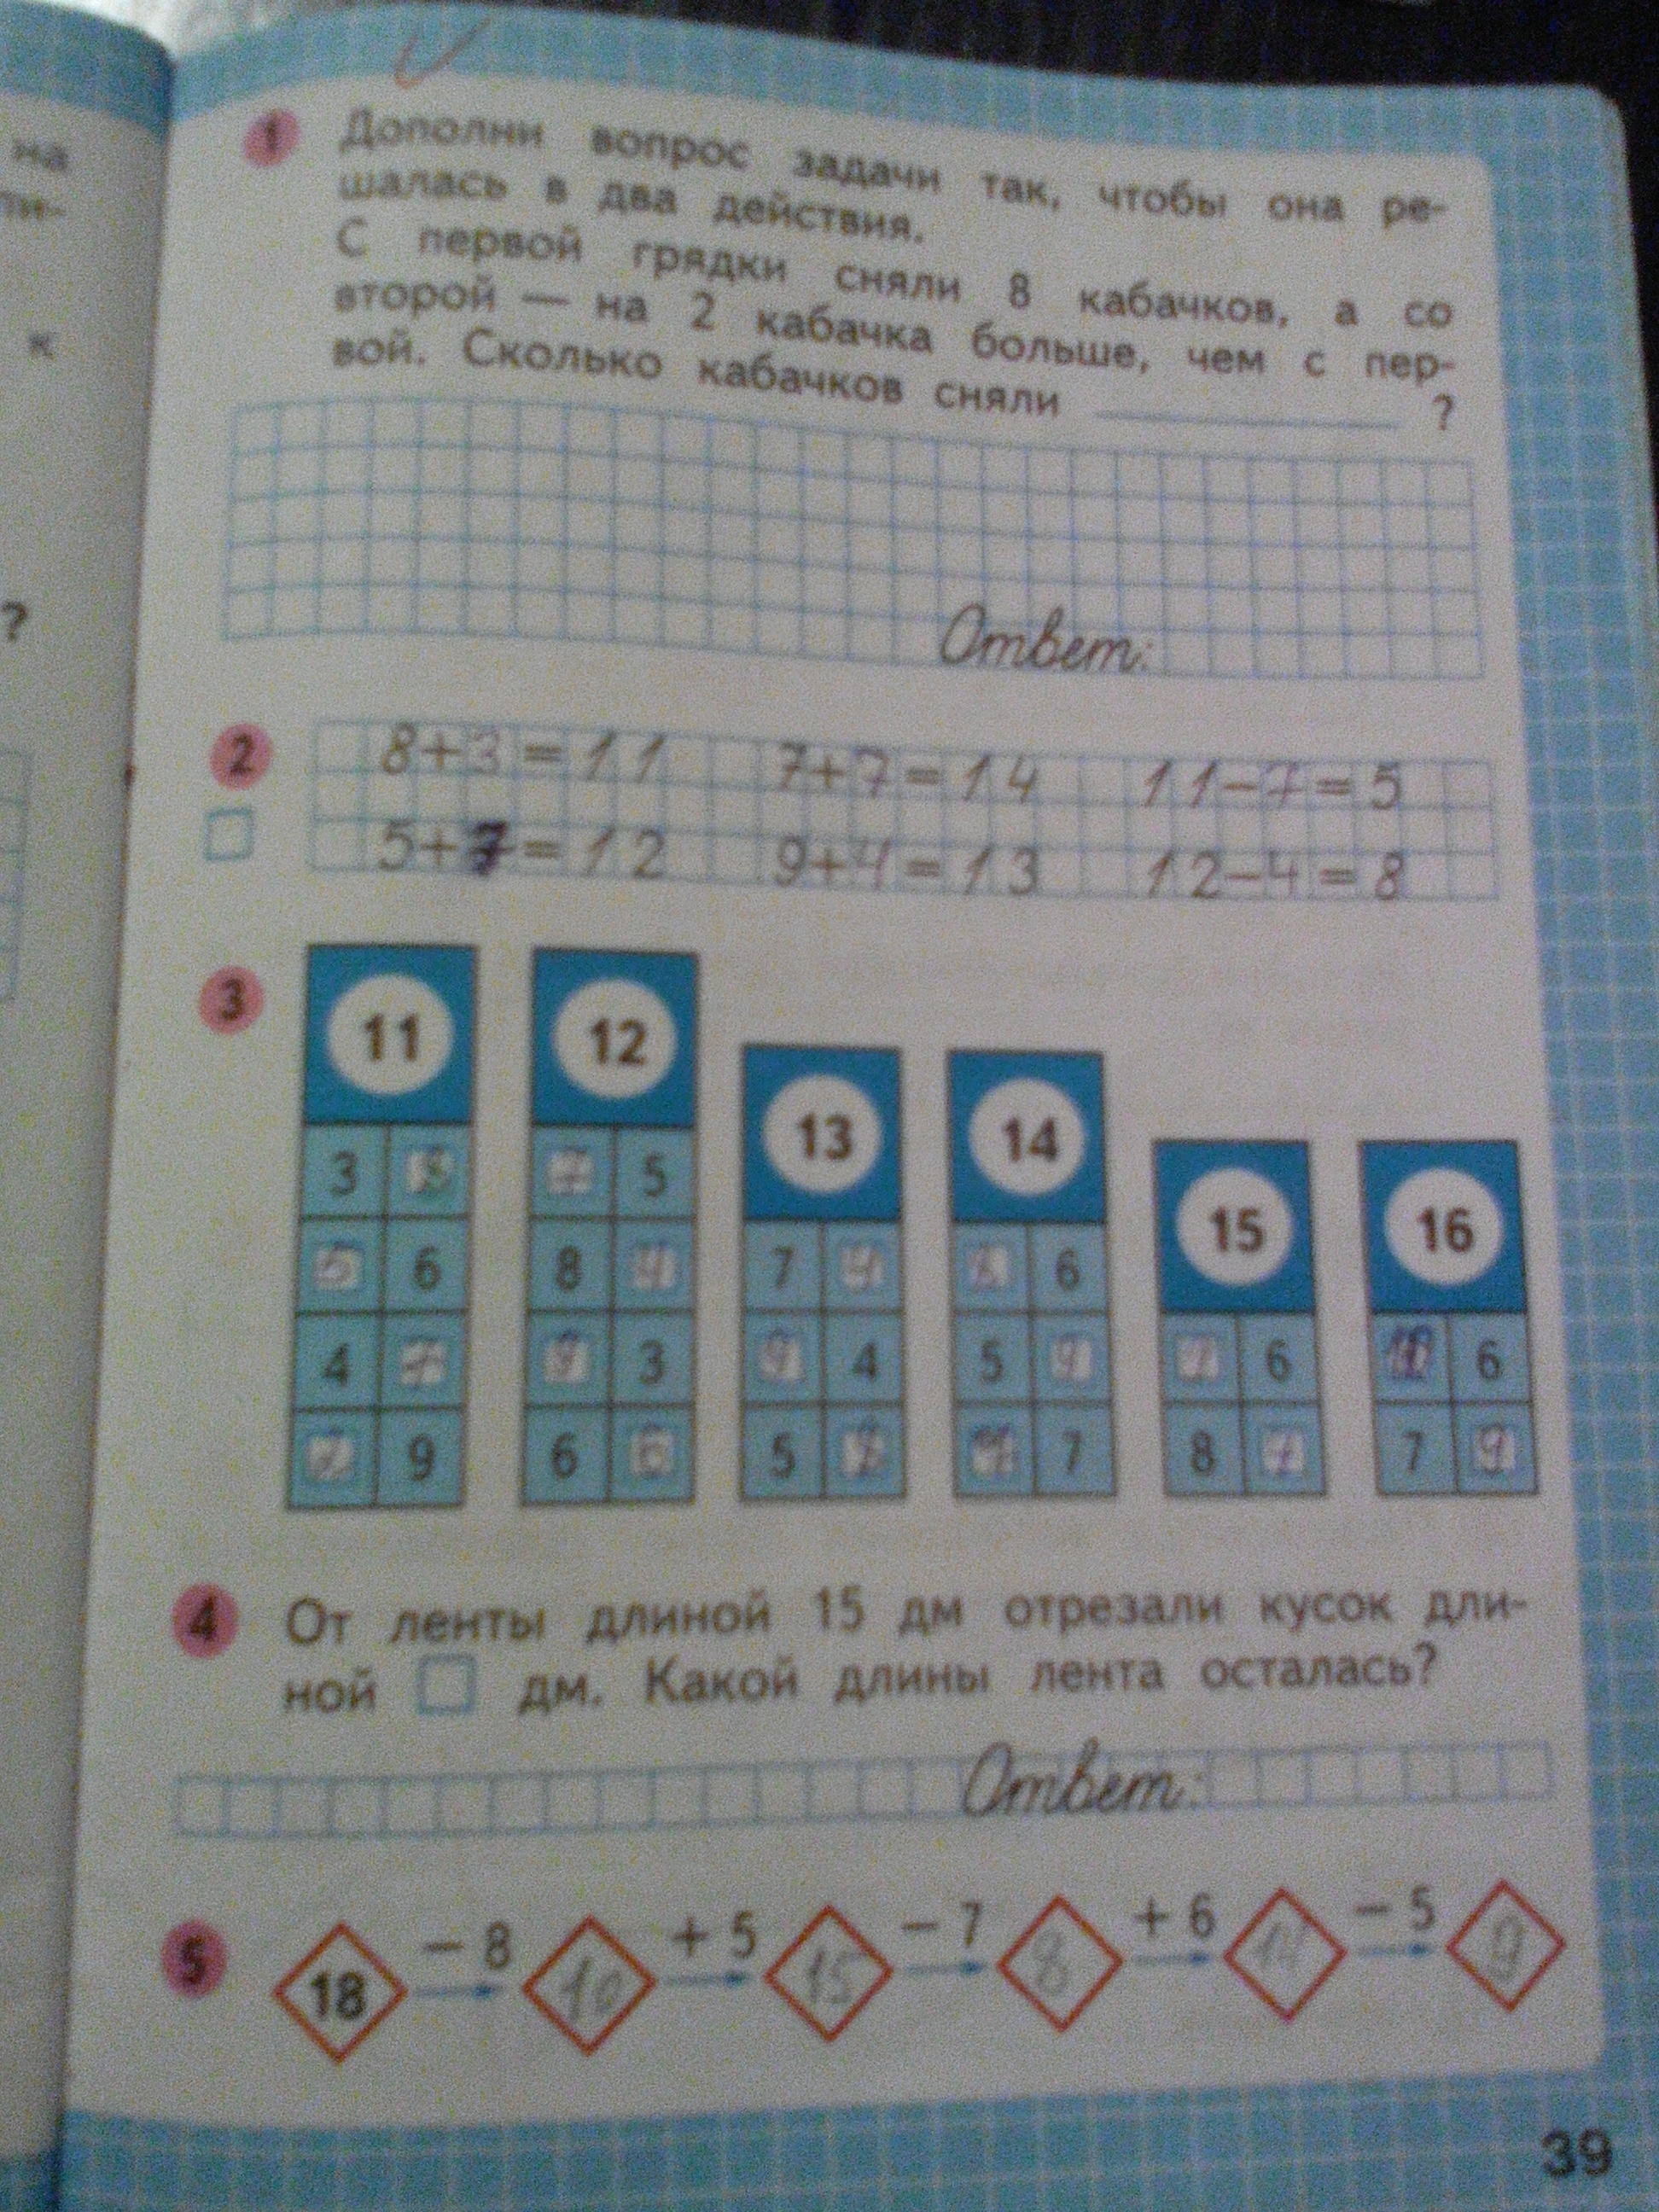 на
пи-
к
?
1 Дополни вопрос задачи так, чтобы она ре-
шалась в два действия.
С первой грядки сняли 8 кабачков, а со
второй — на 2 кабачка больше, чем с пер-
вой. Сколько кабачков сняли ?
Ответ:
2 8+3=11 7+7=14 11-7=5
5+7=12 9+4=13 12-4=8
3 11 12 13 14 15 16
3 7 5
5 6 8 4 7 4 6
4 7 9 3 9 4 5 9 6 6
9 6 6 5 7 8 7 7 9
4 От ленты длиной 15 дм отрезали кусок дли-
ной дм. Какой длины лента осталась?
Ответ:
- 8 + 5 - 7 + 6 - 5
5 18 10 15 8 14 9
39